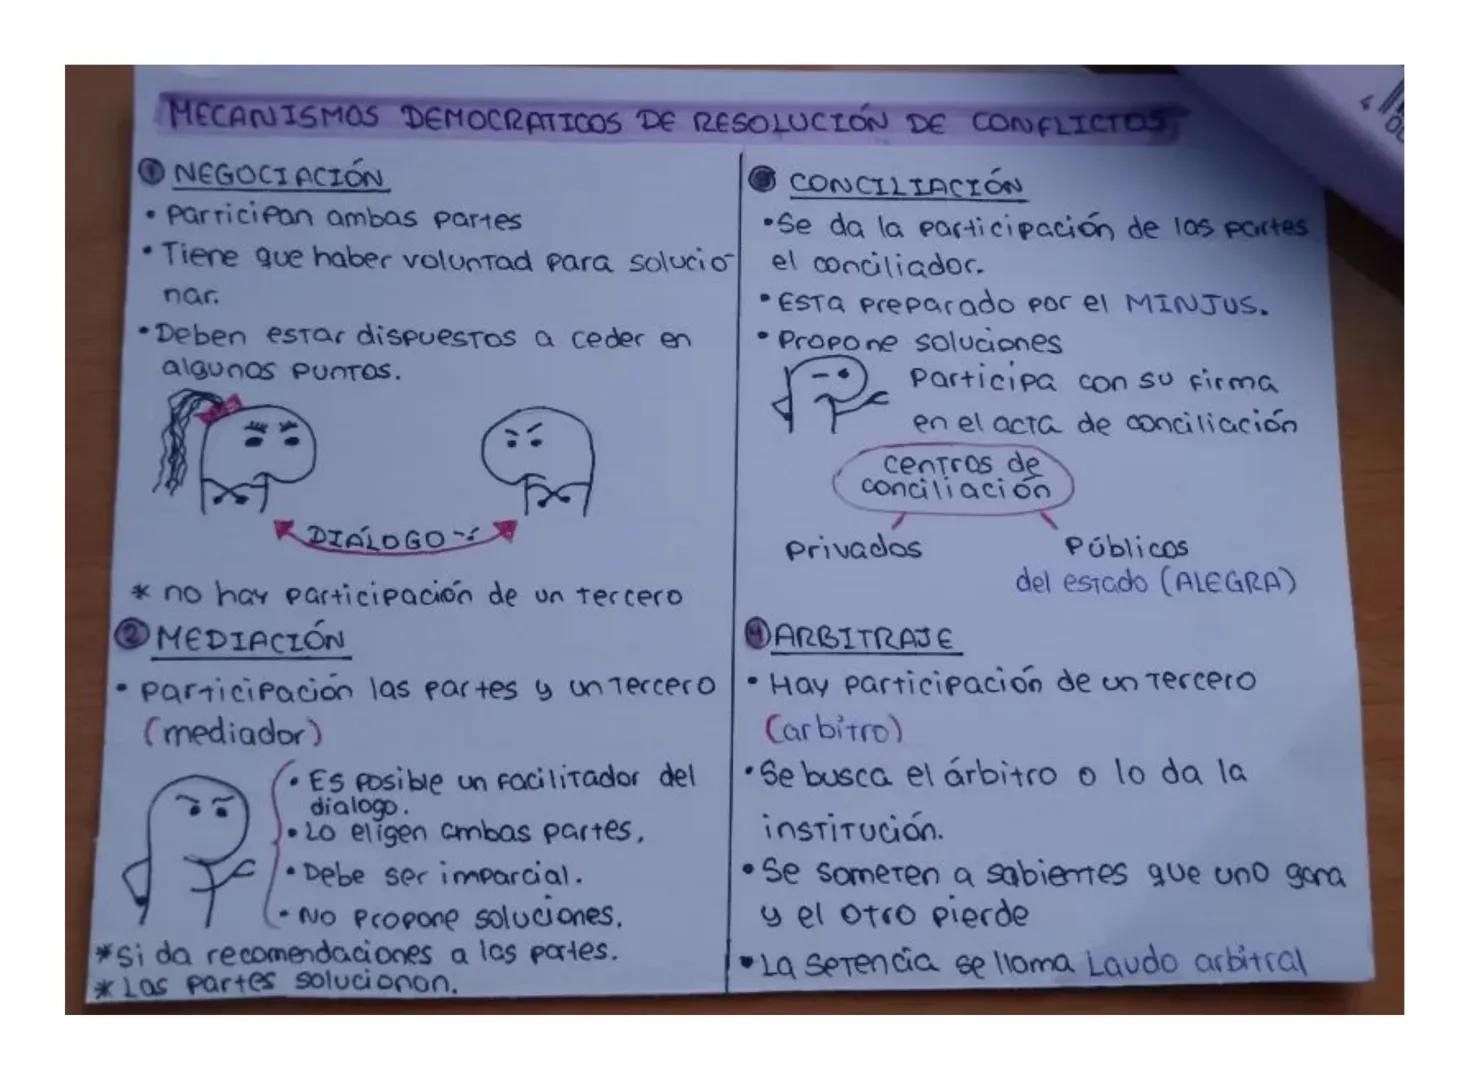 MECANISMOS DEMOCRATICOS DE RESOLUCIÓN DE CONFLICTOS
1 NEGOCIACIÓN
• Participan ambas partes
• Tiene que haber voluntad para solucio-
nar.
• Deben estar dispuestos a ceder en
algunos puntos.
DIÁLOGO
* no hay participación de un tercero
2 MEDIACIÓN
• participación las partes y un tercero
(mediador)
• Es posible un facilitador del
dialogo.
• Lo eligen ambas partes.
• Debe ser imparcial.
• No propone soluciones.
* Si da recomendaciones a las partes.
* Las partes solucionan.
CONCILIACIÓN
• Se da la participación de las partes
el conciliador.
• Esta preparado por el MINJUS.
• Propone soluciones
Participa con su firma
en el acta de conciliación
centros de
conciliación
privados
Públicos
del estado (ALEGRA)
4 ARBITRAJE
• Hay participación de un tercero
(arbitro)
• Se busca el árbitro o lo da la
institución.
• Se someten a sabientes que uno gana
y el otro pierde
• La setencia se llama Laudo arbitral